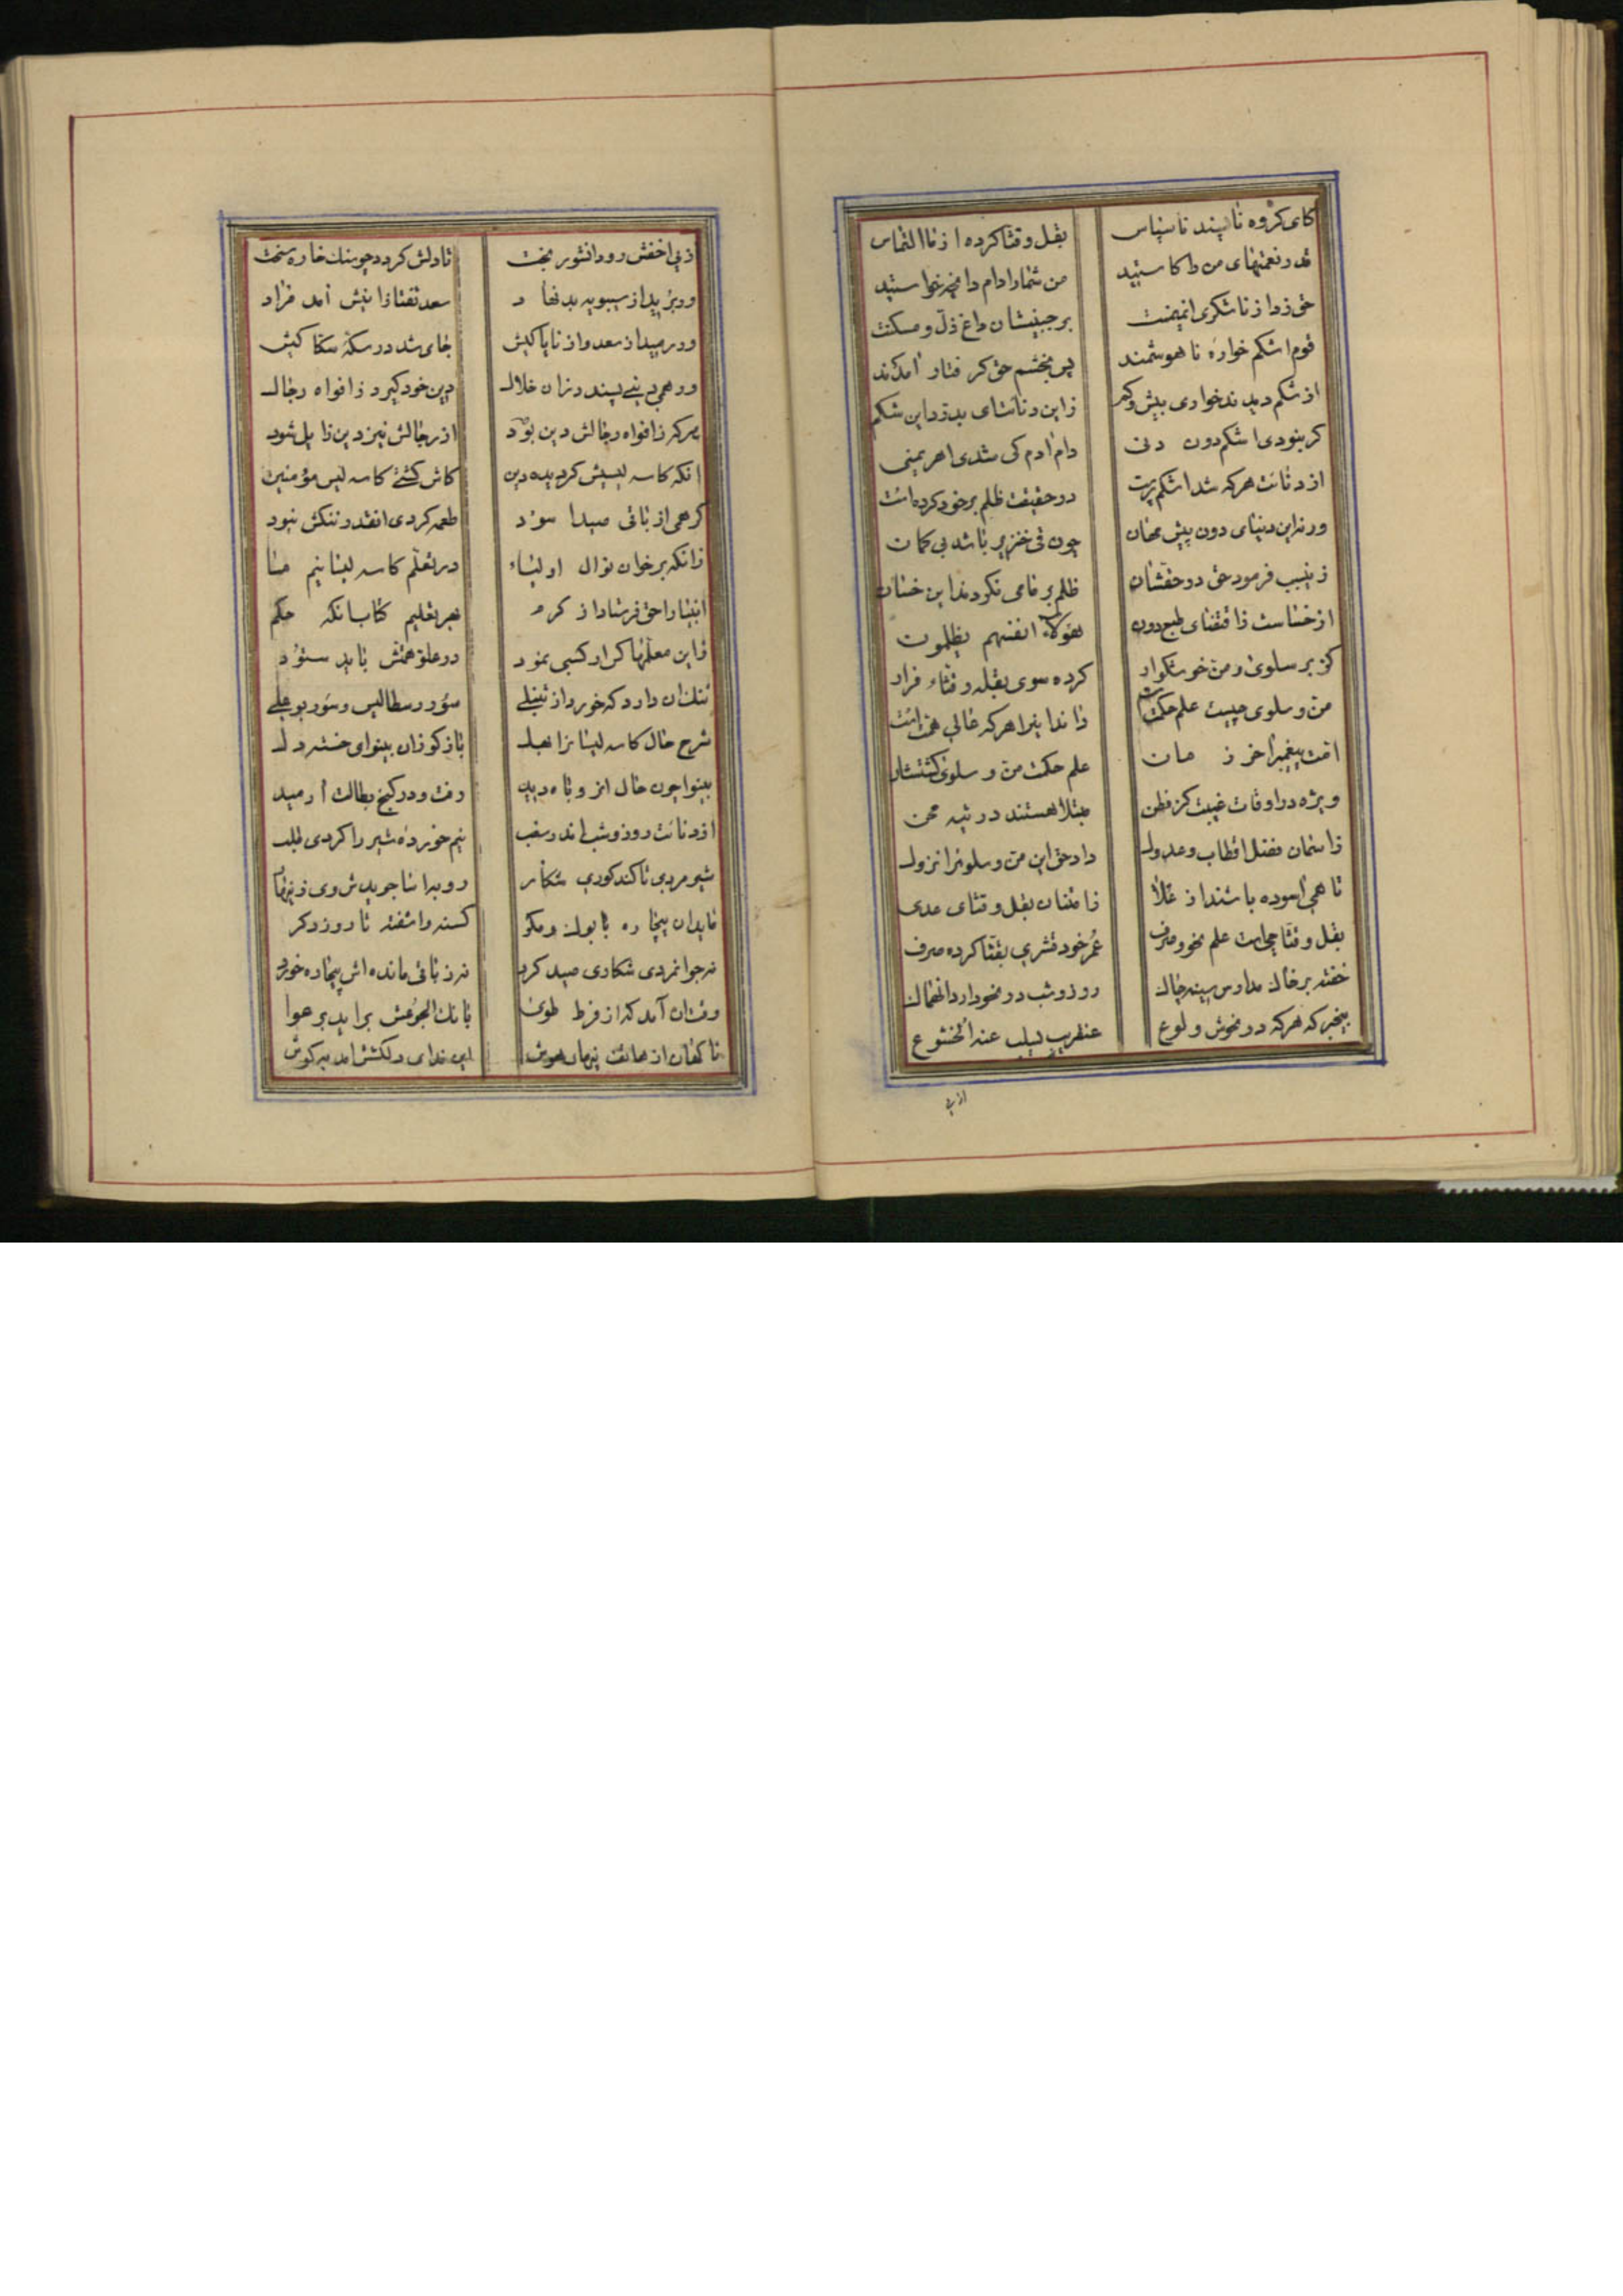 کای کروه ناپسند ناسپاس بقل و قثا کرده از ما التماس
قدر نعمتهای من را کاستید من شما را دادم دا نچه خواستید
حق زد از ناشکری انهمت بر جبینشان داغ ذل و مسکنت
قوم اشکم خواره ناهوشمند پس بخشم حق کرفتار آمدند
از شکم دیدند خواری بیش و کم زاین دنائتهای بدتر داین شکم
کر نبودی اشکم دون دنی دام آدم کی شدی اهریمنی
از دنائت هر که شد اشکم پرست در حقیقت ظلم بر خود کرده است
ورنه این دنیای دون پیش مهان چون قی خنزیر باشد بی کمان
زینسبب فرمود حق در حقشان ظلم بر ما می نکردند این خسان
از خساست ذاقتضای طبع دون هؤلاء انفسهم یظلمون
کز بر سلوی و من خوشکوار کرده سوی بقله و قثاء فرار
من و سلوی چیست علم حکمت داند اینرا هر که عالی همت است
امت پیغمبر اخر زمان علم حکمت من و سلوی کشتشان
ویژه در اوقات غیبت کز فطن مبتلا هستند در تیه محن
زاسمان فضل اقطاب و عدول داد حق این من و سلویرا نزول
تا همی آسوده باشند از غلا زامتنان بقل و قثای عدی
بقل و قثا چیست علم نحو و صرف عمر خود قشری بقثا کرده صرف
خفته بر خاک مدارس سینه چاک روز و شب در نحو دارد انهماک
بیخبر که هر که در نحوش ولوع عنقریب یسلب عنه الخشوع
از پی
از پی اخفش رود انشور بخت تا دلش کردد چو سنک خاره سخت
ور برید از سیبویه بدنهاد سعد تفتازانیش آمد فراد
ور رمید از سعد و از ناپاکیش جای شد در سکنه سکاکیش
ور همی دینی پسندد زان خلال دین خود کیرد ز افواه رجال
هر که ز افواه رجالش دین بود از رجالش نیز دین زایل شود
انکه کاسه لیسیش کردیده دین کاش کشتی کاسه لیس مؤمنین
کر همی از باقی صیدا سود طعمه کردی انقدر ننکش نبود
زانکه بر خوان نوال اولیاء در تعلم کاسه لیسانیم ما
انبیا را حق فرستاد از کرم بهر تعلیم کتاب انکه حکم
زاین معلمها کر ار کسبی نمود در علو همتش باید ستود
ننک ان دارد که خورد از تنبلی سؤر رسطالیس و سؤر بوعلی
شرح حال کاسه لیسانرا بهل باز کو زان بینوای خسته دل
بینوا چون حال ان روباه دید رفت و در کنج بطالت آرمید
از دنائت روز و شب اندر سغب نیم خورده شیر را کردی طلب
شیر مردی تا کند کوری شکار روبه اسا جویدش وی زینهار
ماند ان بیچاره با بوک و مکر کسنه و اشفته تا روز دکر
نه جوانمردی شکاری صید کرد نه ز باقی مانده اش بیچاره خورد
وقت ان آمد که از فرط طوی بانک الجوعش براید بر هوا
ناکهان از هاتف پنهان هوش این ندای دلکشش امد بکوش